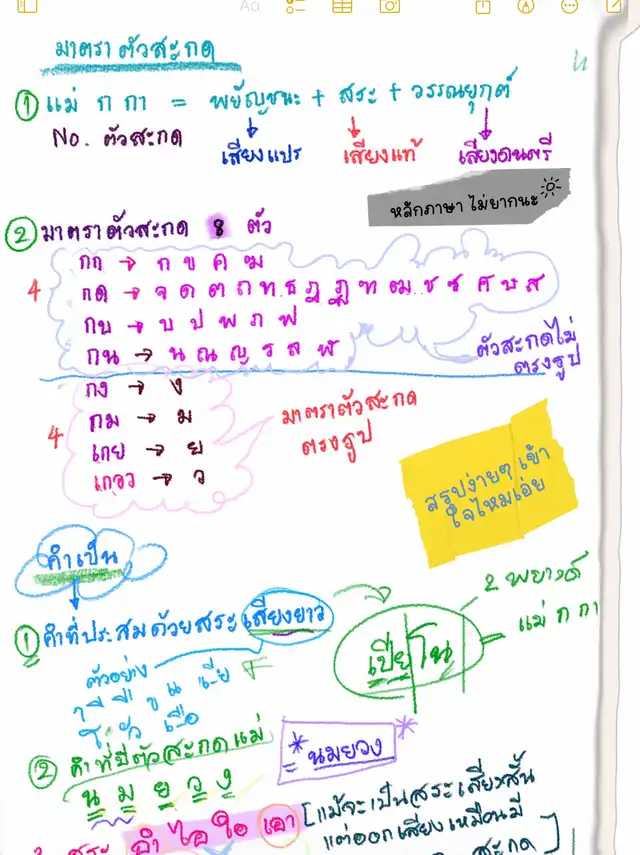 มาตราตัวสะกด
① แม่ ก กา = พยัญชนะ + สระ + วรรณยุกต์
No. ตัวสะกด
เสียงแปร เสียงแท้ เสียงดนตรี
หลักภาษา ไม่ยากนะ
② มาตราตัวสะกด 8 ตัว
4
กก → ก ข ค ฆ
กด → จ ด ต ถ ท ธ ฎ ฏ ฑ ฒ ช ซ ศ ษ ส
กบ → บ ป พ ภ ฟ
กน → น ณ ญ ร ล ฬ
ตัวสะกดไม่
ตรงรูป
4
กง → ง
กม → ม
เกย → ย
เกอว → ว
มาตราตัวสะกด
ตรงรูป
สรุปง่ายๆ เข้า
ใจไหมเอ่ย
คำเป็น
① คำที่ประสมด้วยสระเสียงยาว
ตัวอย่าง
เปียโน
2 พยางค์
แม่ ก กา
② คำที่มีตัวสะกดแม่
น ม ย ว ง
* นมยวง *
สระ อำ ไอ ใอ เอา
[แม้จะเป็นสระเสียงสั้น
แต่ออกเสียงเหมือนมี
สะกด]